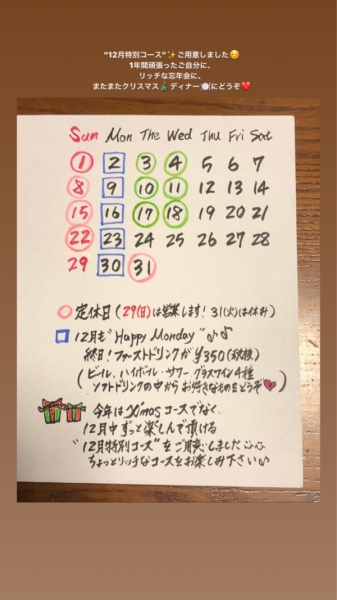 "12月特別コース"✨ご用意しました☺️
1年間頑張ったご自分に、
リッチな忘年会に、
またまたクリスマス🎄ディナー🍽にどうぞ❤️
Sun Mon The Wed Thu Fri Sat
1 2 3 4 5 6 7
8 9 10 11 12 13 14
15 16 17 18 19 20 21
22 23 24 25 26 27 28
29 30 31
定休日(29(日)は営業します! 31(火)は休み)
12月も"Happy Monday"♪♪
終日!ファーストドリンクが¥350(税抜)
(ビール、ハイボール・サワー、グラスワイン4種
ソフトドリンクの中からお好きなものをどうぞ)
今年はX'mosコースでなく、
12月中ずっと楽しんで頂ける
"12月特別コース"をご用意しました
ちょっとリッチなコースをお楽しみ下さい♪